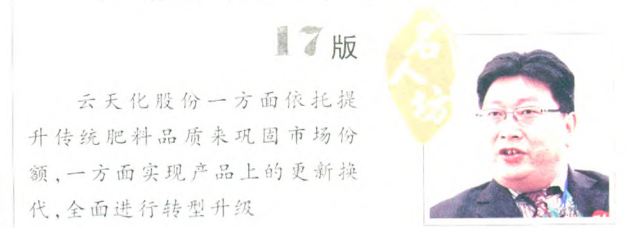 17版
名人坊
云天化股份一方面依托提
升传统肥料品质来巩固市场份
额,一方面实现产品上的更新换
代,全面进行转型升级